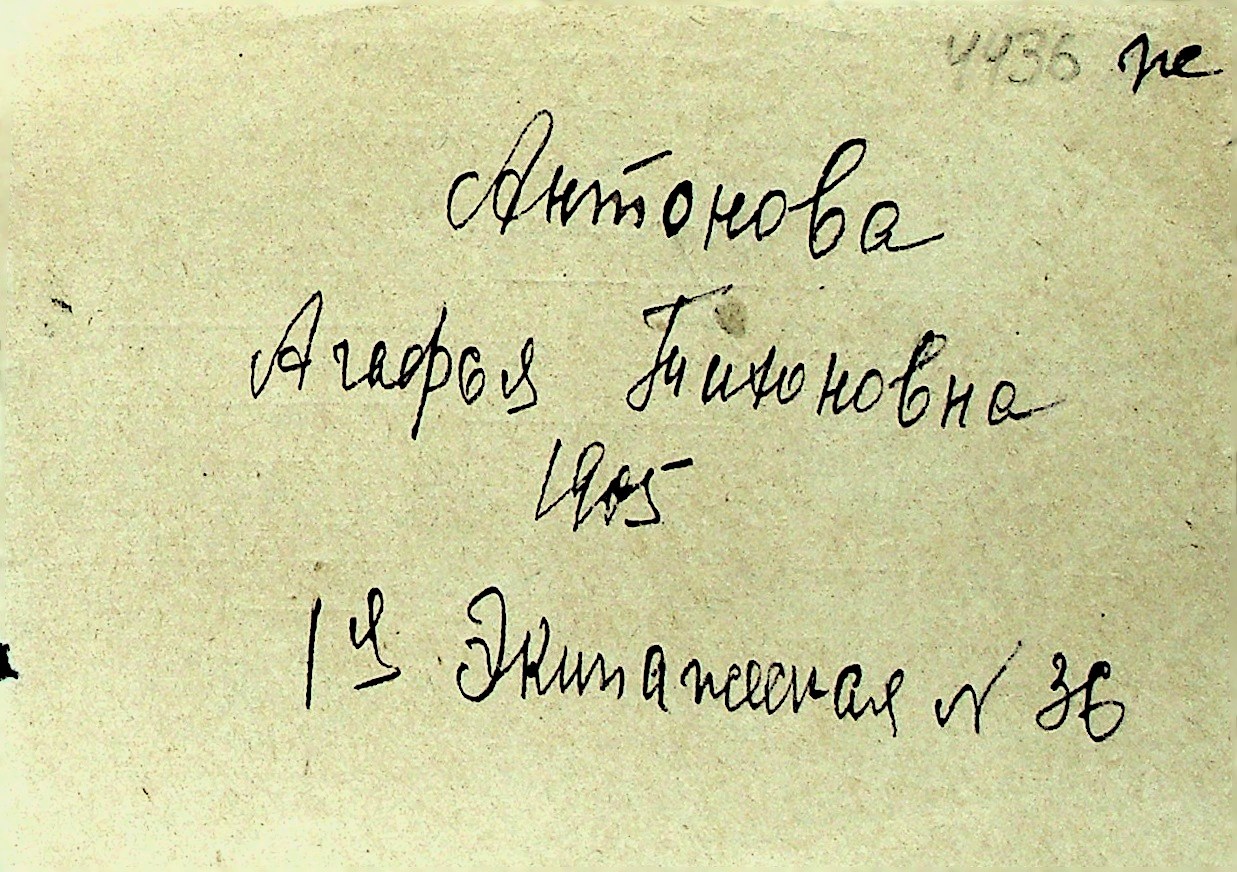 4436 же
Антонова
Агафья Тихоновна
1905
1я Экипажеская N 36